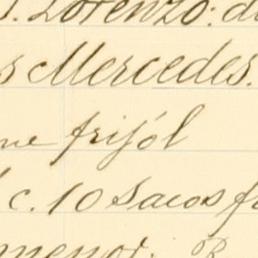 S. Lorenzo: d
s Mercedes.
ne frijól
c. 10 Sacos f
menor. B